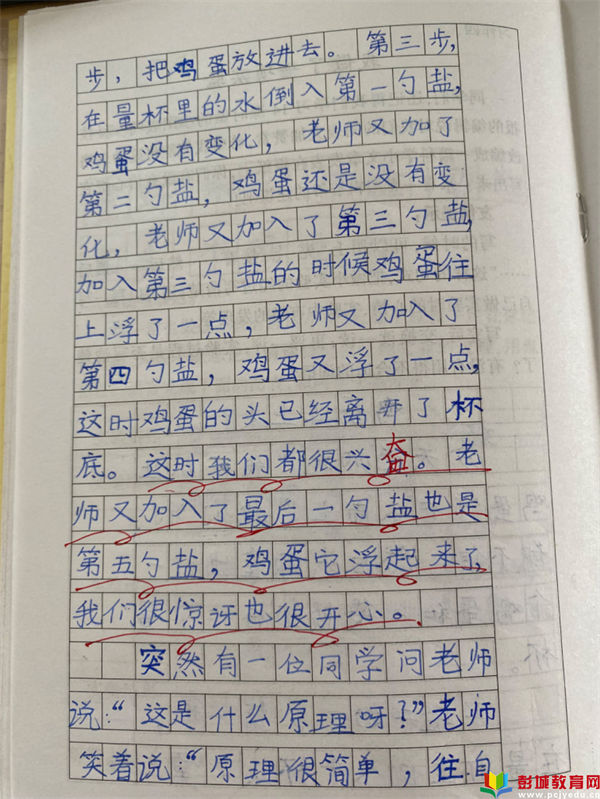 步，把鸡蛋放进去。第三步，
在量杯里的水倒入第一勺盐，
鸡蛋没有变化，老师又加了
第二勺盐，鸡蛋还是没有变
化，老师又加入了第三勺盐，
加入第三勺盐的时候鸡蛋往
上浮了一点，老师又加入了
第四勺盐，鸡蛋又浮了一点，
这时鸡蛋的头已经离开了杯
底。这时我们都很兴奋。老
师又加入了最后一勺盐也是
第五勺盐，鸡蛋它浮起来了，
我们很惊讶也很开心。
突然有一位同学问老师
说：“这是什么原理呀？”老师
笑着说：“原理很简单，往自
彭城教育网
www.pcjyedu.cn